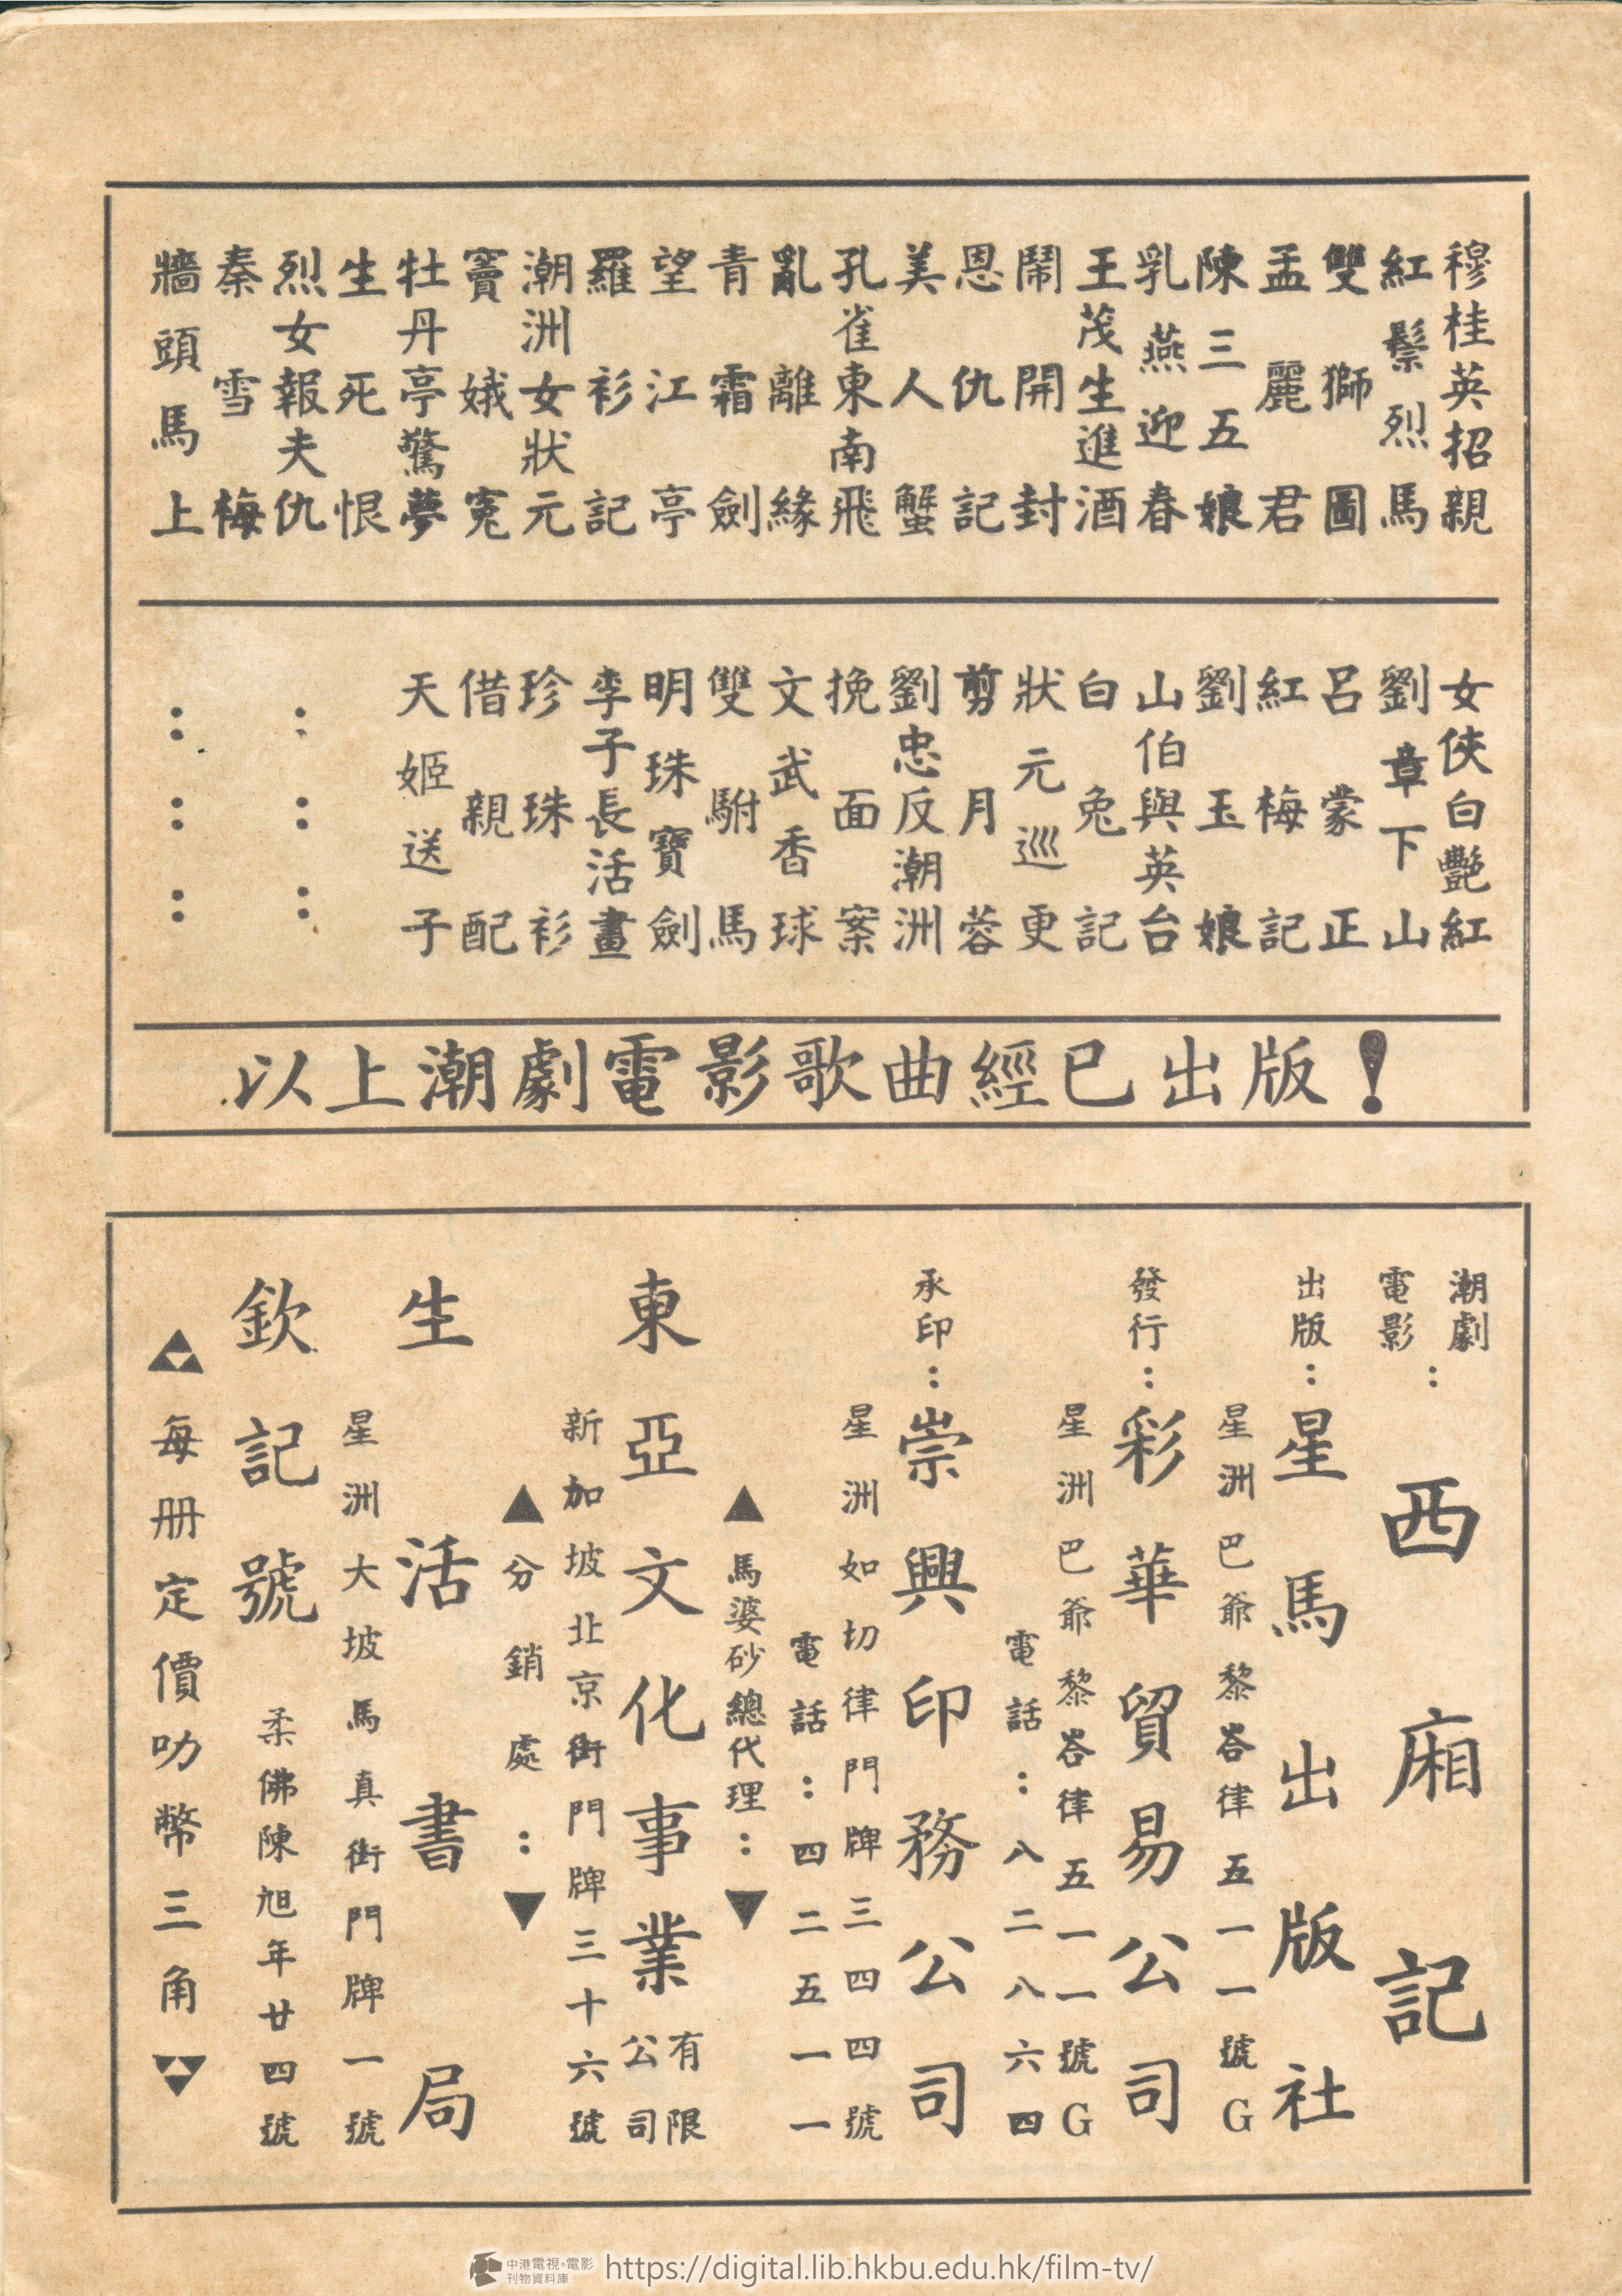 穆桂英招親
紅鬃烈馬
雙獅圖
孟麗君
陳三五娘
乳燕迎春
王茂生進酒
鬧開封
恩仇記
美人蟹
孔雀東南飛
亂離緣
青霜劍
望江亭
羅衫記
潮洲女狀元
竇娥寃
牡丹亭驚夢
生死恨
烈女報夫仇
秦雪梅
牆頭馬上
女俠白艷紅
劉章下山
呂蒙正
紅梅記
劉玉娘
山伯與英台
白兔記
狀元巡更
剪月蓉
劉忠反潮洲
挽面案
文武香球
雙駙馬
明珠寶劍
李子長活畫
珍珠衫
借親配
天姬送子
：：：
：：：
以上潮劇電影歌曲經已出版！
潮劇電影：西廂記
出版：星馬出版社
星洲巴爺黎峇律五一一號G
發行：彩華貿易公司
星洲巴爺黎峇律五一一號G
電話：八二八六四
承印：崇興印務公司
星洲如切律門牌三四四號
電話：四二五一一
▲馬婆砂總代理：▼
東亞文化事業有限公司
新加坡北京街門牌三十六號
▲分銷處：▼
生活書局
星洲大坡馬真街門牌一號
欽記號
柔佛陳旭年廿四號
每册定價叻幣三角
中港電視·電影
刊物資料庫
https://digital.lib.hkbu.edu.hk/film-tv/